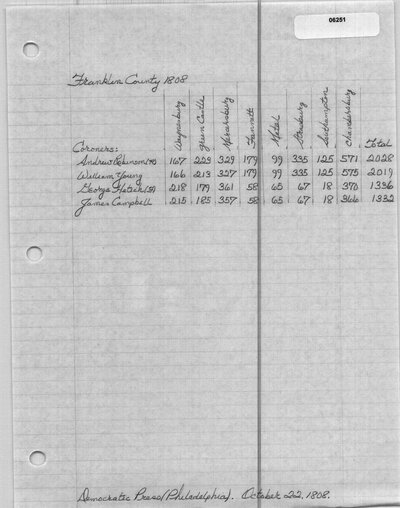 06251
Franklin County 1808
Waynesburg Green Castle Mercersburg Fannett Metal Strasburg Southampton Chambersburg Total
Coroners:
Andrew Robinson 167 223 329 179 99 335 125 571 2028
William Young 166 213 327 179 99 335 125 575 2019
George Hetich 218 179 361 58 65 67 18 370 1336
James Campbell 215 185 357 58 65 67 18 366 1332
Democratic Press (Philadelphia). October 22, 1808.